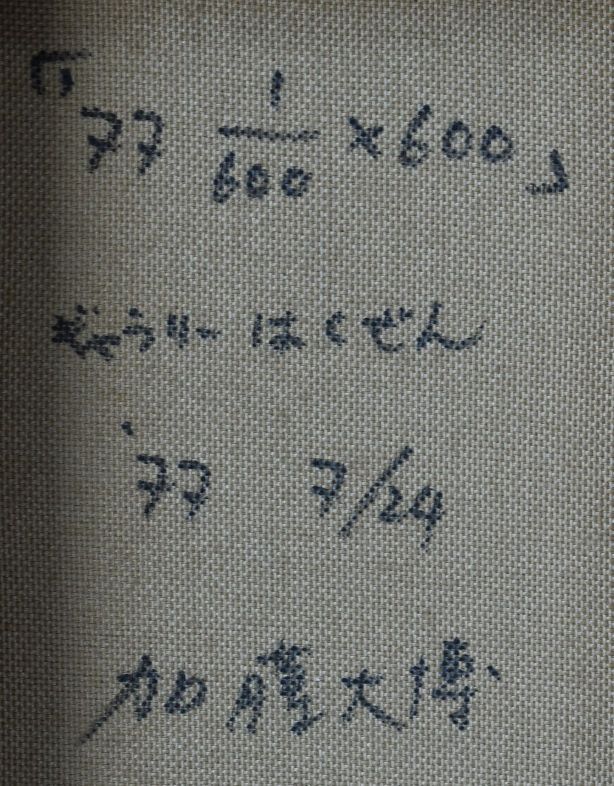 「77 1/600 ×600」
ぎゃらりー はくぜん
'77 7/24
加藤大博